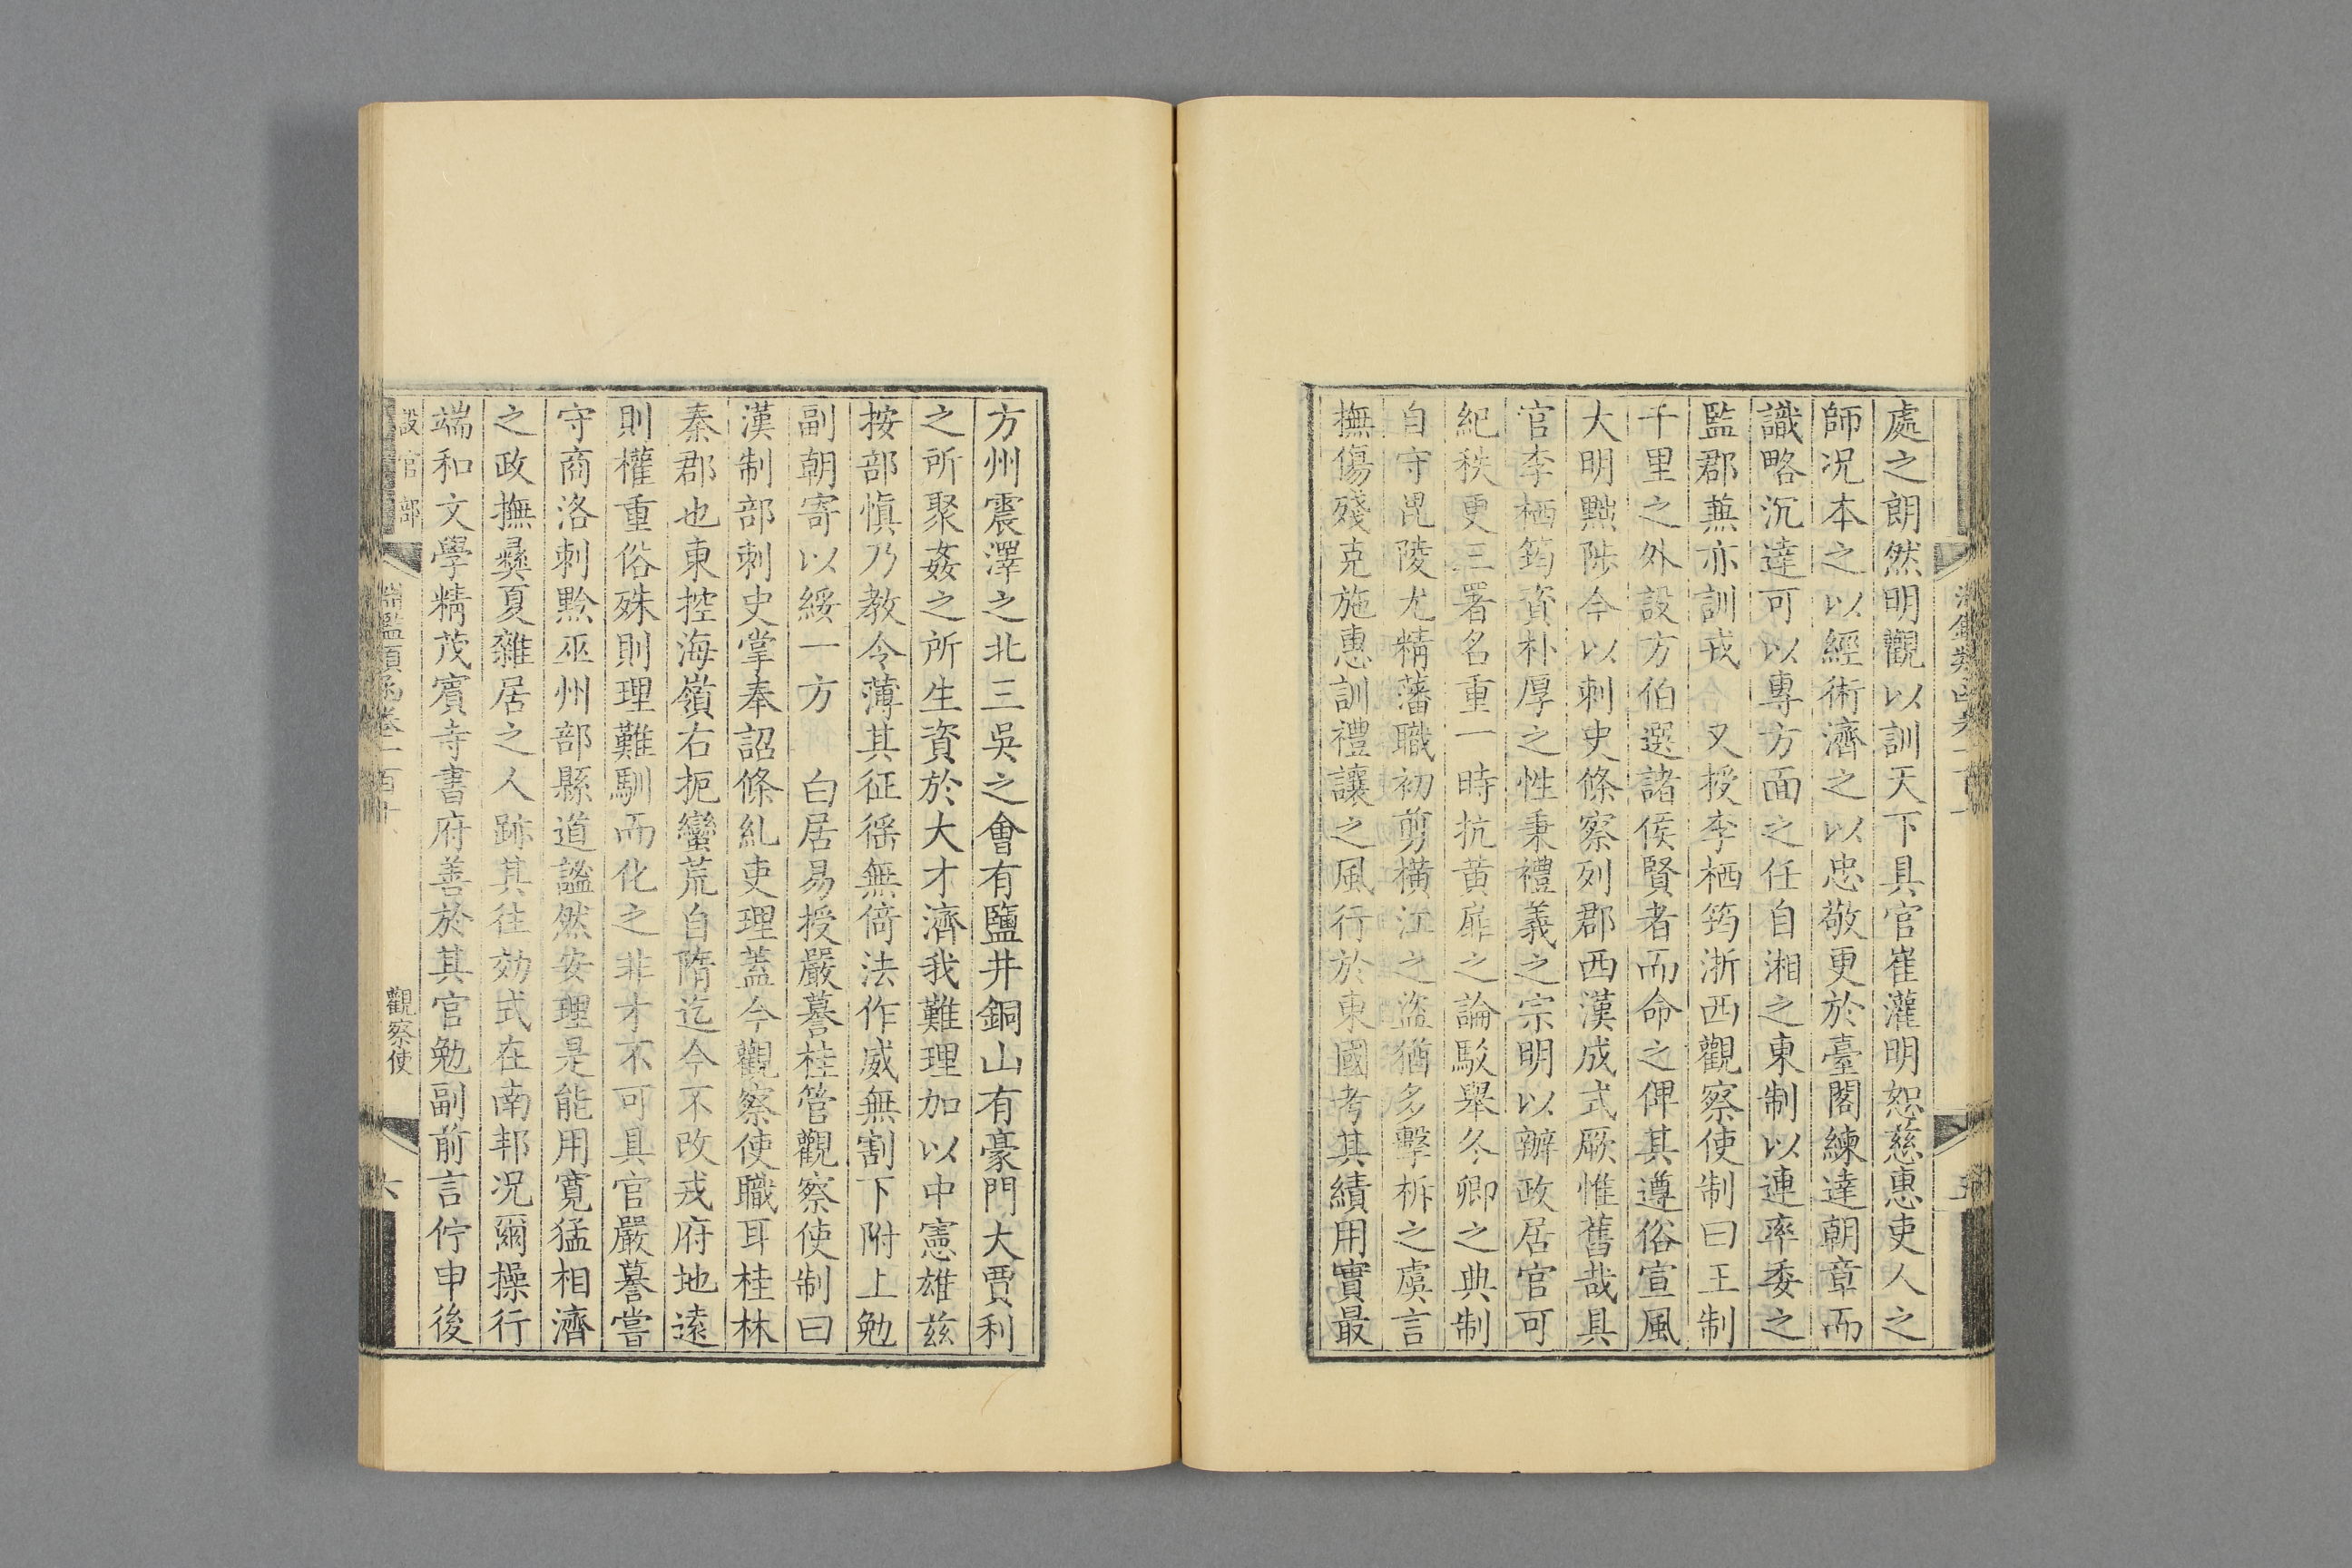 處之朗然明觀以訓天下具官崔灌明恕慈惠吏人之
師况本之以經術濟之以忠敬更於臺閣練達朝章而
識略沉達可以專方面之任自湘之東制以連率委之
監郡兼亦訓戎　又授李栖筠浙西觀察使制曰王制
千里之外設方伯選諸侯賢者而命之俾其遵俗宣風
大明黜陟今以刺史條察列郡西漢成式厥惟舊哉具
官李栖筠資朴厚之性秉禮義之宗明以辦政居官可
紀秩更三署名重一時抗黄扉之論駁舉冬卿之典制
自守毘陵尤精藩職初剪橫江之盜猶多擊柝之虞言
撫傷殘克施惠訓禮讓之風行於東國考其績用實最
方州震澤之北三吳之會有鹽井銅山有豪門大賈利
之所聚姦之所生資於大才濟我難理加以中憲雄兹
按部愼乃教令薄其征徭無倚法作威無割下附上勉
副朝寄以綏一方　白居易授嚴謩桂管觀察使制曰
漢制部刺史掌奉詔條糺吏理蓋今觀察使職耳桂林
秦郡也東控海嶺右扼蠻荒自隋迄今不改戎府地遠
則權重俗殊則理難馴而化之非才不可具官嚴謩嘗
守商洛刺黔巫州部縣道謐然安理是能用寬猛相濟
之政撫彛夏雜居之人跡其往効式在南邦况爾操行
端和文學精茂賓寺書府善於其官勉副前言佇申後
設官部
淵鑑類函卷一百十
觀察使
六